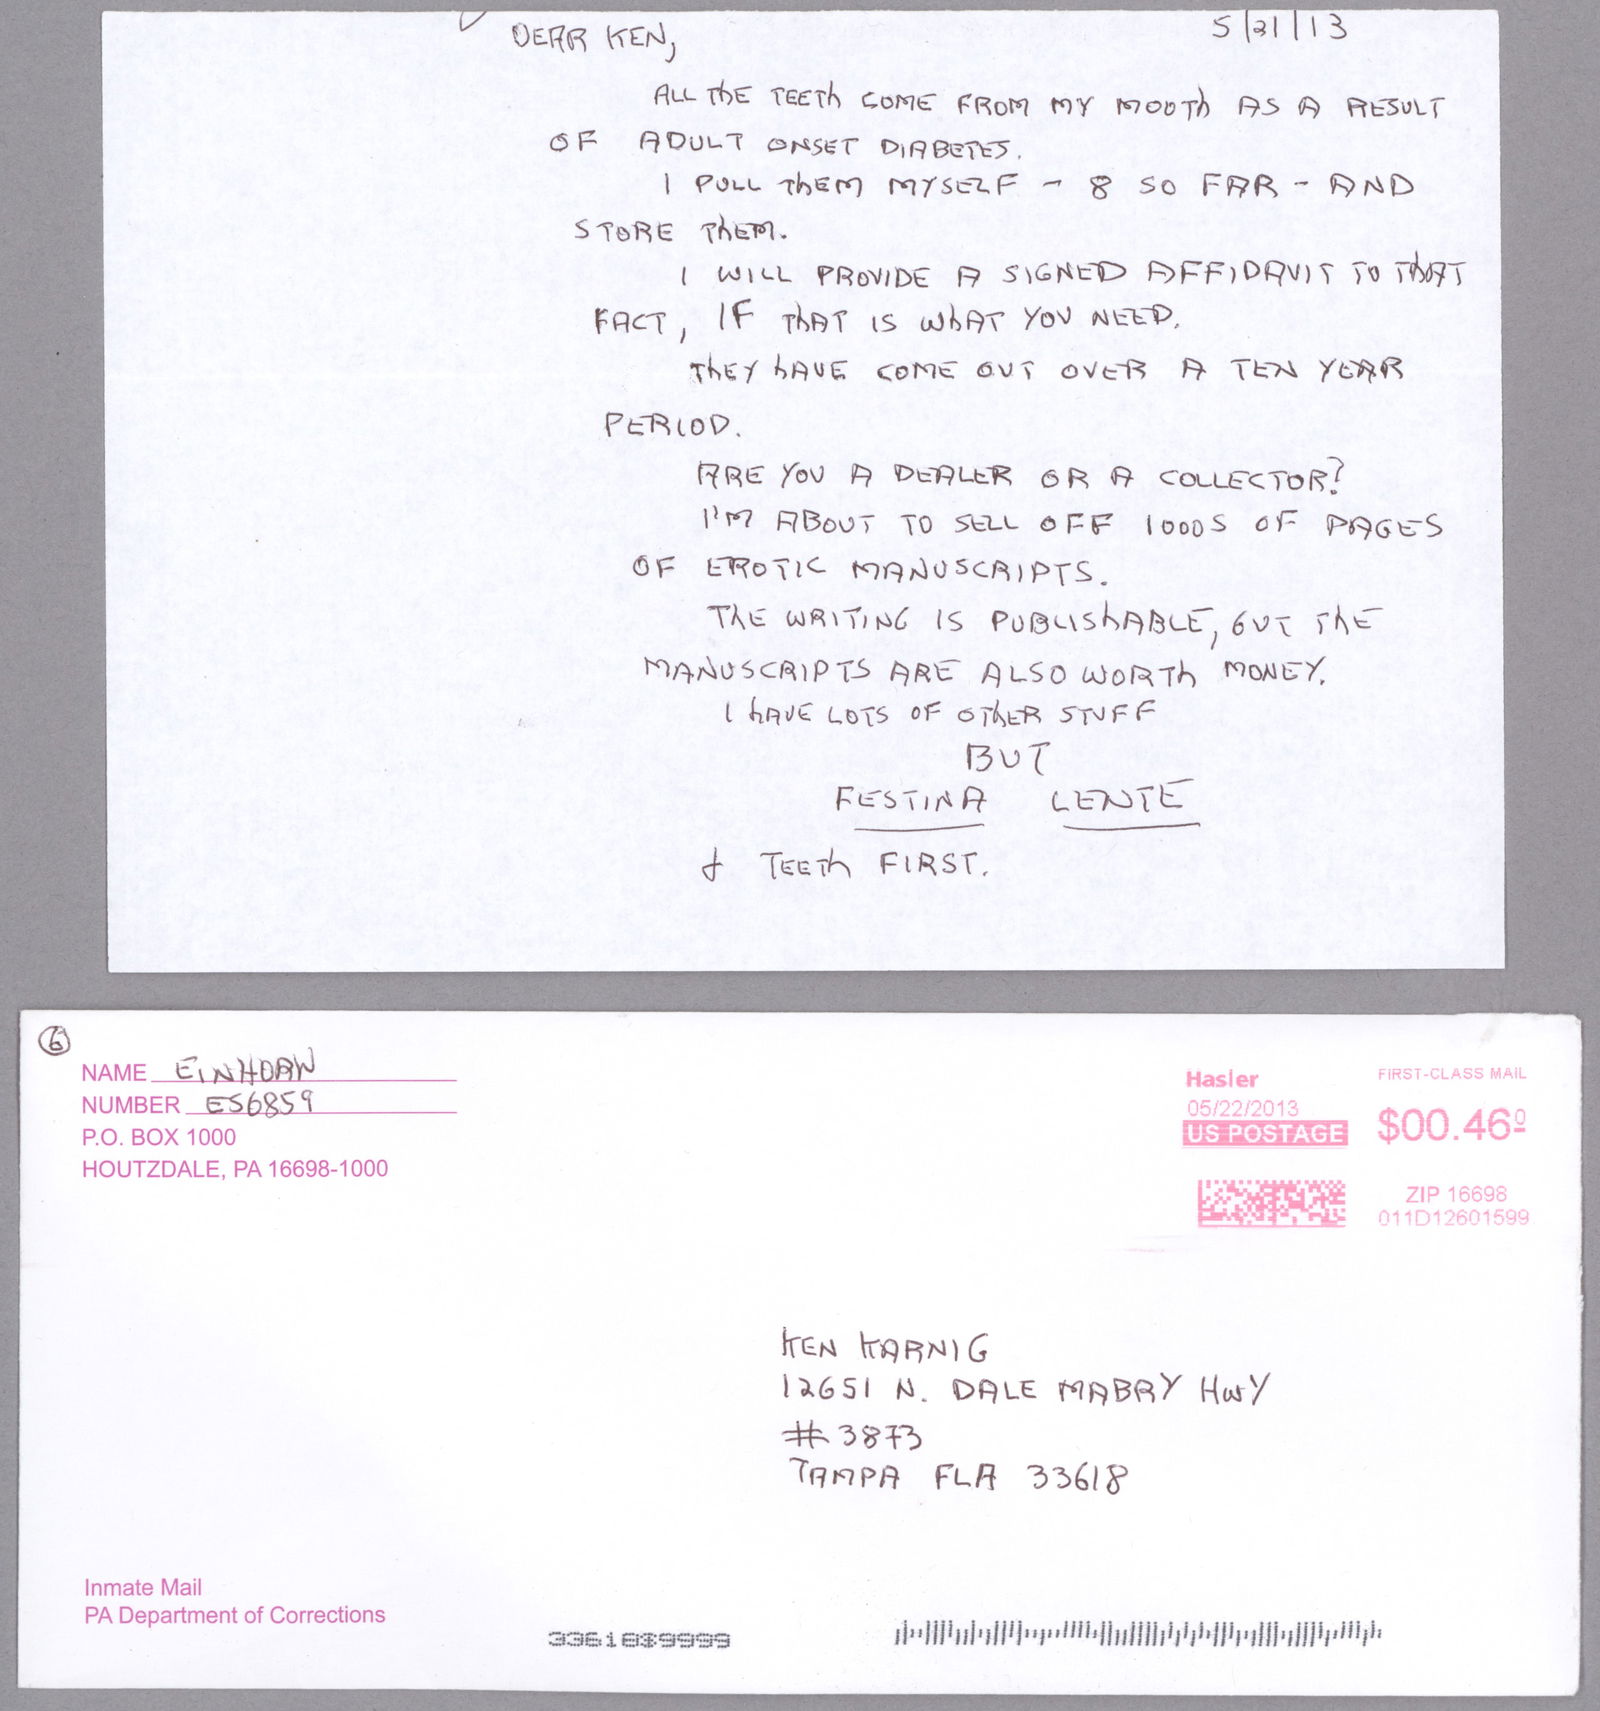 DEAR KEN,
5/21/13
ALL THE TEETH COME FROM MY MOUTH AS A RESULT
OF ADULT ONSET DIABETES.
I PULL THEM MYSELF - 8 SO FAR - AND
STORE THEM.
I WILL PROVIDE A SIGNED AFFIDAVIT TO THAT
FACT, IF THAT IS WHAT YOU NEED.
THEY HAVE COME OUT OVER A TEN YEAR
PERIOD.
ARE YOU A DEALER OR A COLLECTOR?
I'M ABOUT TO SELL OFF 1000S OF PAGES
OF EROTIC MANUSCRIPTS.
THE WRITING IS PUBLISHABLE, BUT THE
MANUSCRIPTS ARE ALSO WORTH MONEY.
I HAVE LOTS OF OTHER STUFF
BUT
FESTINA LENTE
& TEETH FIRST.
6
NAME EINHORN
NUMBER ES6859
P.O. BOX 1000
HOUTZDALE, PA 16698-1000
Hasler
05/22/2013
US POSTAGE
FIRST-CLASS MAIL
$00.46⁰
ZIP 16698
011D12601599
KEN KARNIG
12651 N. DALE MABRY HWY
#3873
TAMPA FLA 33618
Inmate Mail
PA Department of Corrections
33618$9999